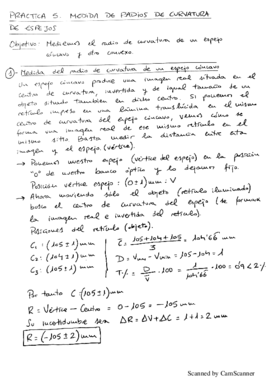 PRACTICA 5: MEDIDA DE RADIOS DE CURVATURA
DE ESPEJOS
Objetivo: Mediremos el radio de curvatura de un espejo cóncavo
y otro convexo.
1- Medida del radio de curvatura de un espejo cóncavo
Un espejo cóncavo podrá una imagen real situada en el
centro de curvatura, invertida y de igual tamaño de un
objeto situado también en dicho centro. Si ponemos el
retículo impreso en una lámina translúcida en el mismo
centro de curvatura del espejo cóncavo, vemos cómo se
forma una imagen real de ese mismo retículo en el
mismo sitio. Basta medir la distancia entre esta
imagen y el espejo (vértice).
→ Ponemos nuestro espejo (vértice del espejo) en la posición
"0" de nuestro banco óptico y lo dejamos fijo.
Posición vértice espejo: (0±1)mm: V
→ Ahora moviendo sólo el objeto (retículo iluminado)
busco el centro de curvatura del espejo (se forma
la imagen real e invertida del retículo).
Posiciones del retículo (objeto).
C1: (105±1)mm
C2: (104±1)mm
C3: (105±1)mm
C̄ = 105+104+105 / 3 = 104'66
D = Vmáx - Vmín = 105-104 = 1
T% = D/V̄ · 100 = 1/104'66 · 100 = 0'9 < 2%
Por tanto C = (105±1)mm
R = Vértice - Centro = 0-105 = -105mm
Su incertidumbre será ΔR = ΔV + ΔC = 1+1 = 2 mm
R = (-105±2)mm
Scanned by CamScanner